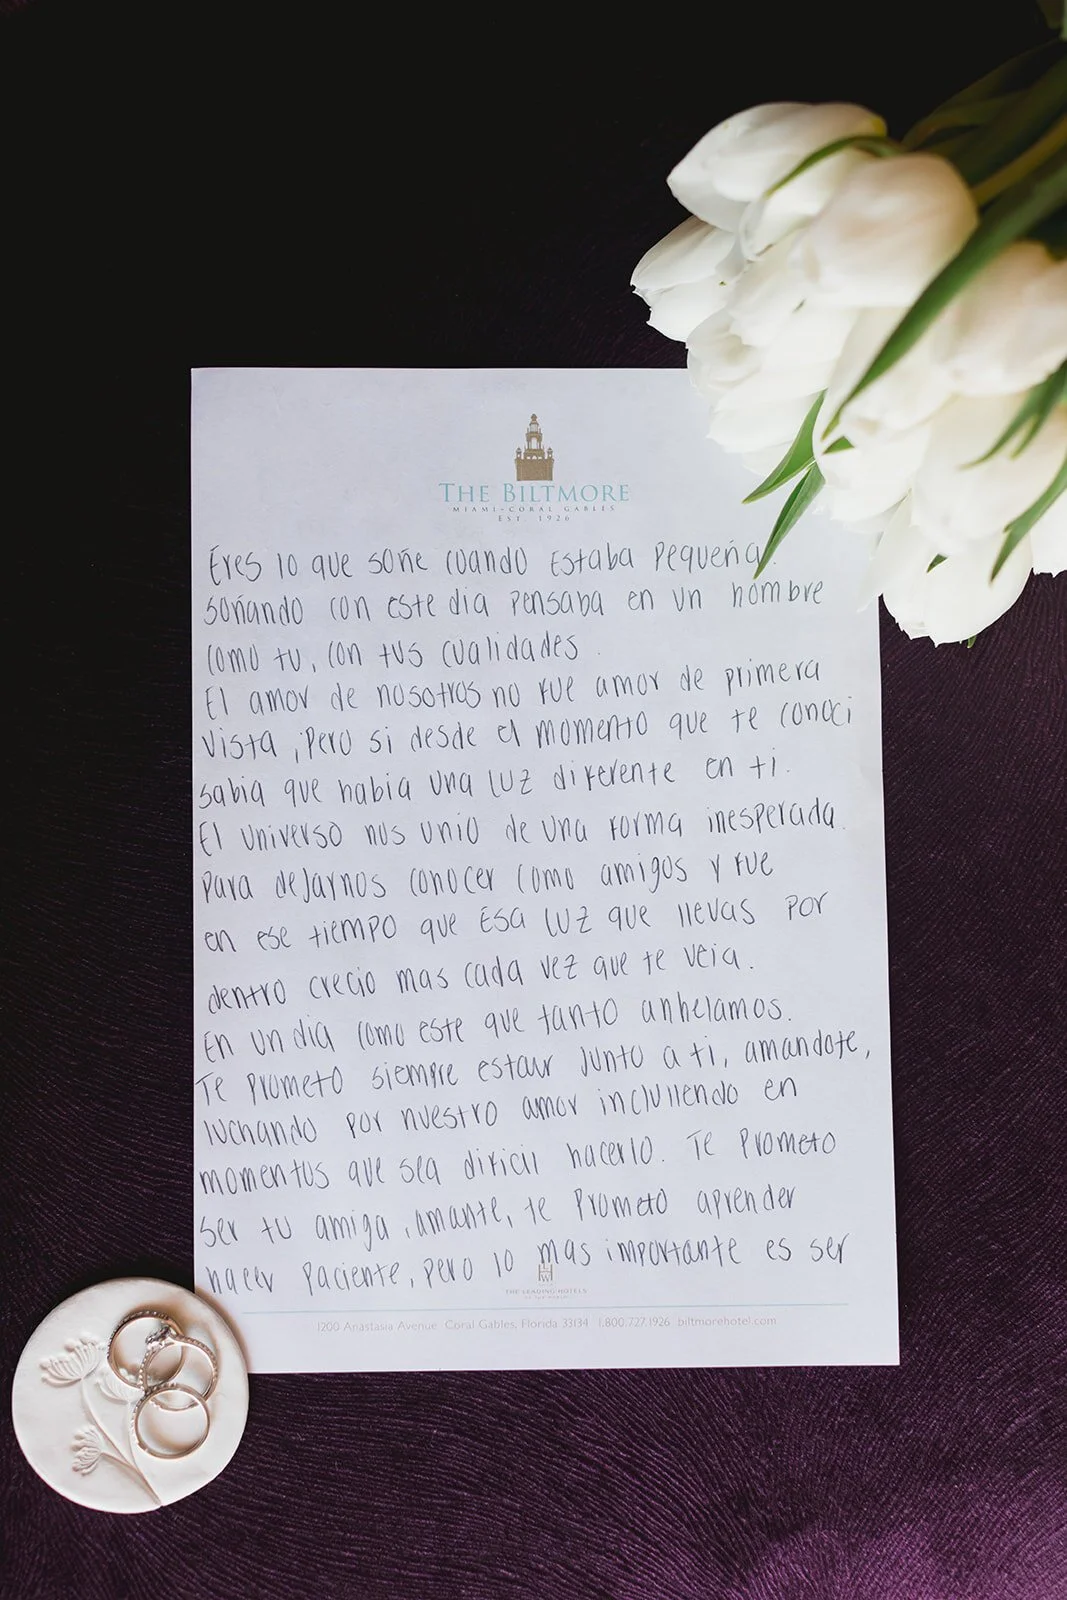 THE BILTMORE
MIAMI-CORAL GABLES
EST. 1926
Eres lo que soñe cuando estaba pequeña.
soñando con este dia pensaba en un hombre
como tu, con tus cualidades.
El amor de nosotros no fue amor de primera
vista, pero si desde el momento que te conoci
sabia que habia una luz diferente en ti.
El universo nos unio de una forma inesperada.
para dejarnos conocer como amigos y fue
en ese tiempo que esa luz que llevas por
dentro crecio mas cada vez que te veia.
En un dia como este que tanto anhelamos.
Te prometo siempre estar junto a ti, amandote,
luchando por nuestro amor inclullendo en
momentos que sea dificil hacerlo. Te prometo
ser tu amiga, amante, te prometo aprender
hacer paciente, pero lo mas importante es ser
THE LEADING HOTELS
OF THE WORLD
1200 Anastasia Avenue Coral Gables, Florida 33134 1.800.727.1926 biltmorehotel.com